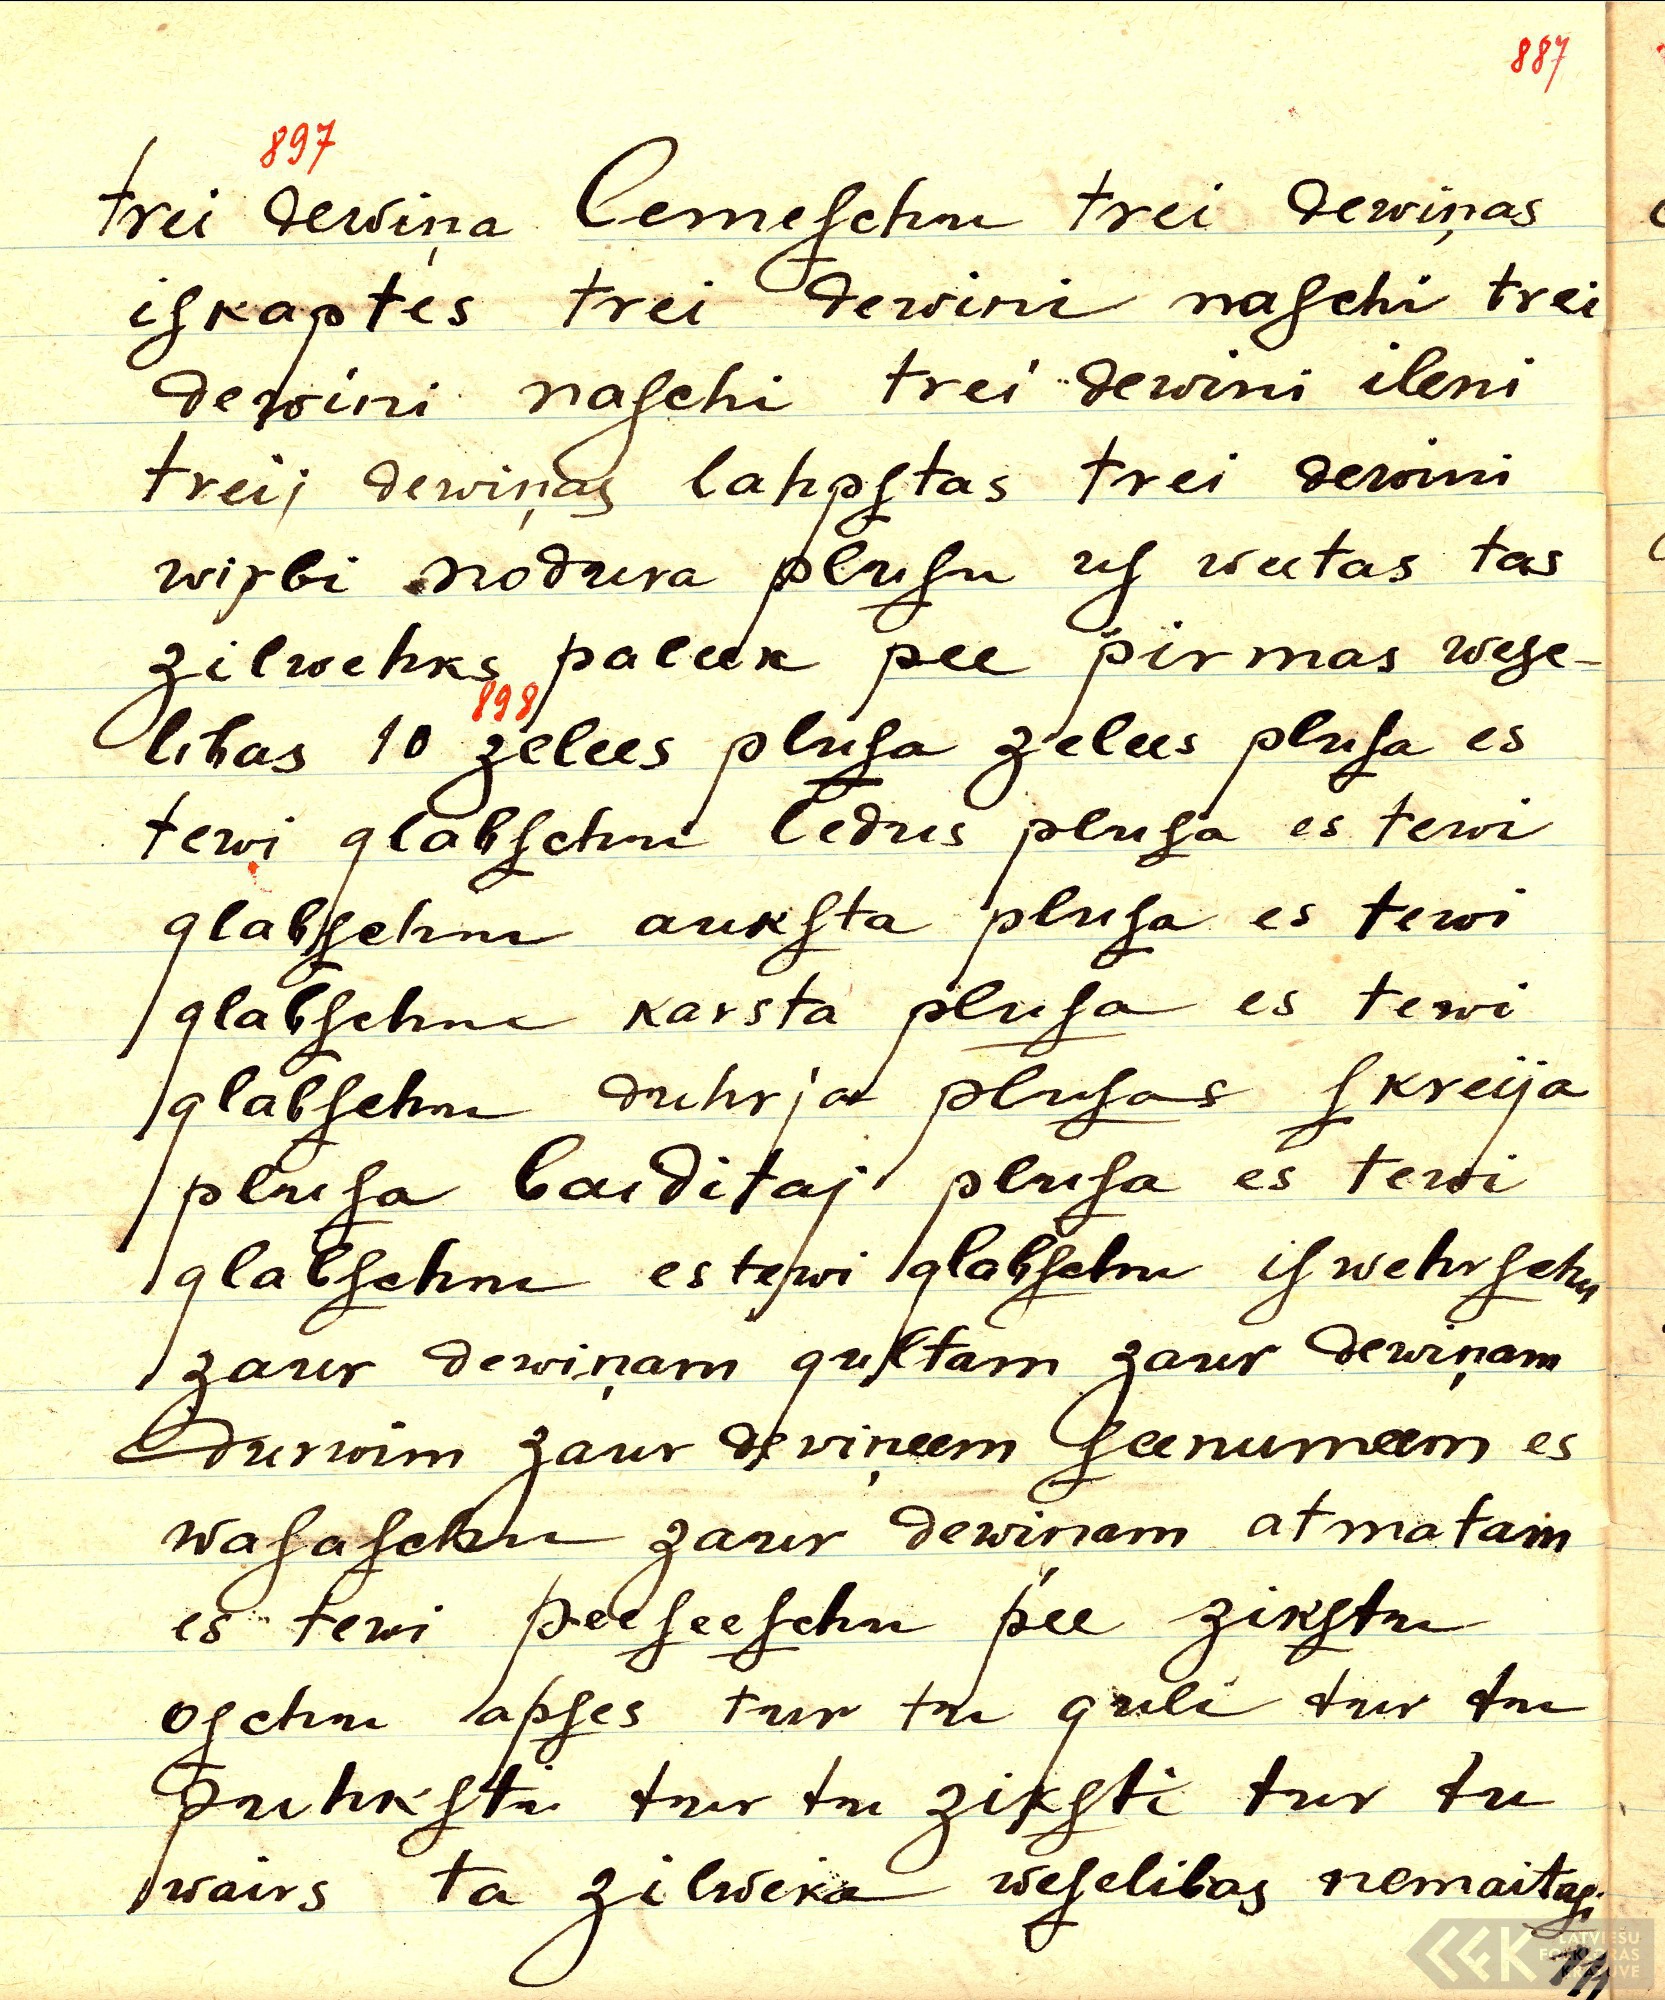 887
897
trei dewiņa lemeſchu trei dewiņas
iſkaptes trei dewini naſchi trei
dewini naſchi trei dewini ileni
treij dewiņas lahpſtas trei dewini
wirbi nodura pluſu uſ weetas tas
zilwehks paleek pee pirmas weſe-
898
libas 10 zelees pluſa zelees pluſa es
tewi glabſchu ledus pluſa es tewi
glabſchu aukſta pluſa es tewi
glabſchu karsta pluſa es tewi
glabſchu duhrja pluſas ſkreija
pluſa baiditaj pluſa es tewi
glabſchu es tewi glabſchu iſwehrſchu
zaur dewiņam gultam zaur dewiņam
durwim zaur deviņeem ſeenumeem es
waſaſchu zaur dewiņam atmatam
es tewi peeſeeſchu pee zikſtu
oſchu apſes tur tu guli tur tu
puhkſti tur tu zikſti tur tu
wairs ta zilweka weſelibas nemaitaſi
LATVIEŠU
FOLKLORAS
KRĀTUVE